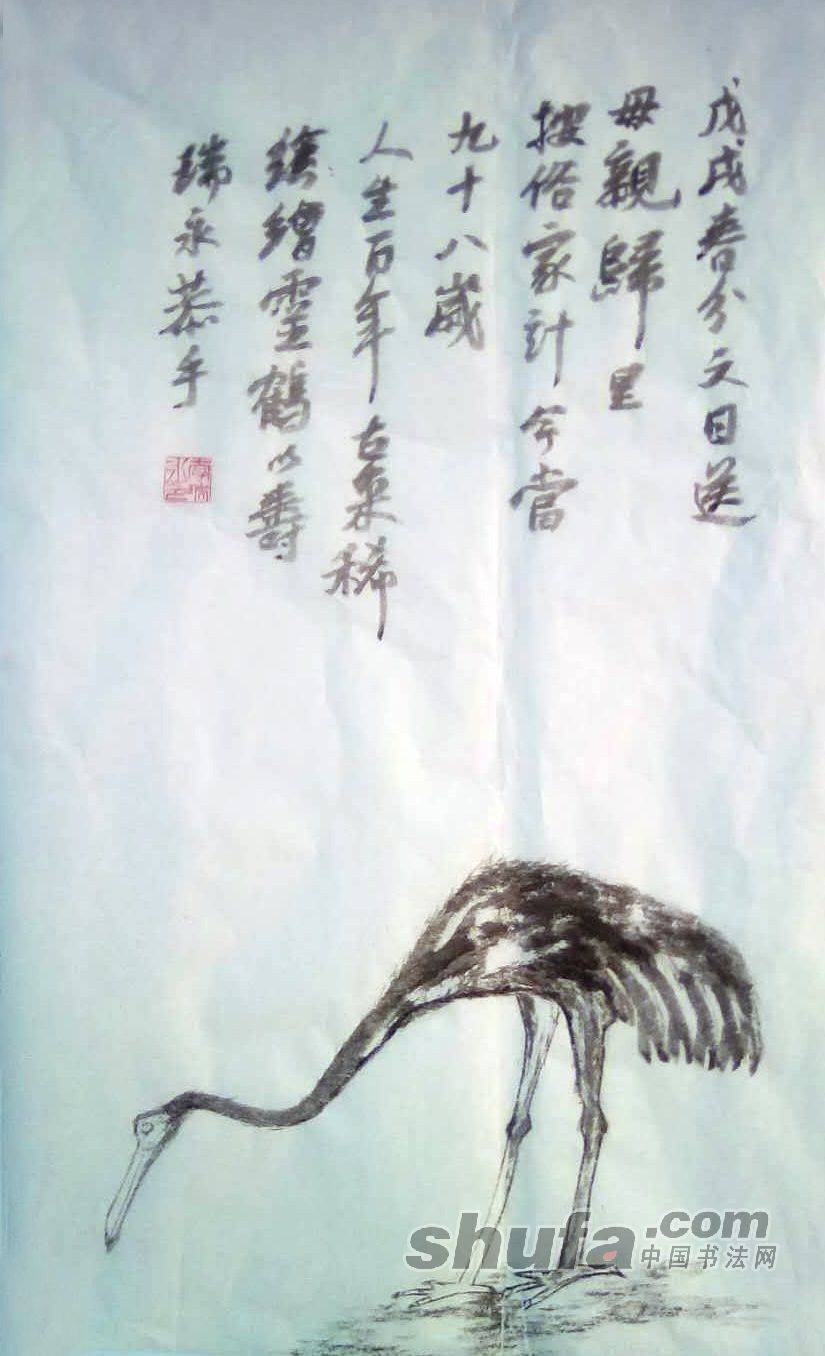 戊戌春分文日送
母親歸里
按俗家計今當
九十八歲
人生百年古來稀
繪靈鶴以壽
瑞永恭手
shufa.com
中国书法网